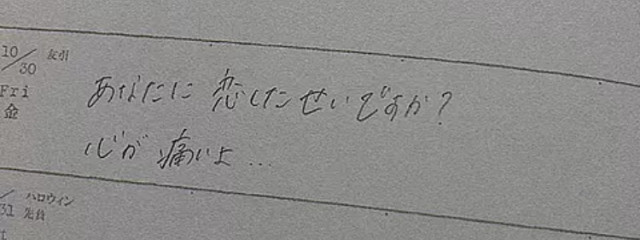 10/30 友引
Fri
金
あなたに恋したせいですか?
心が痛いよ...
31 ハロウィン
先負